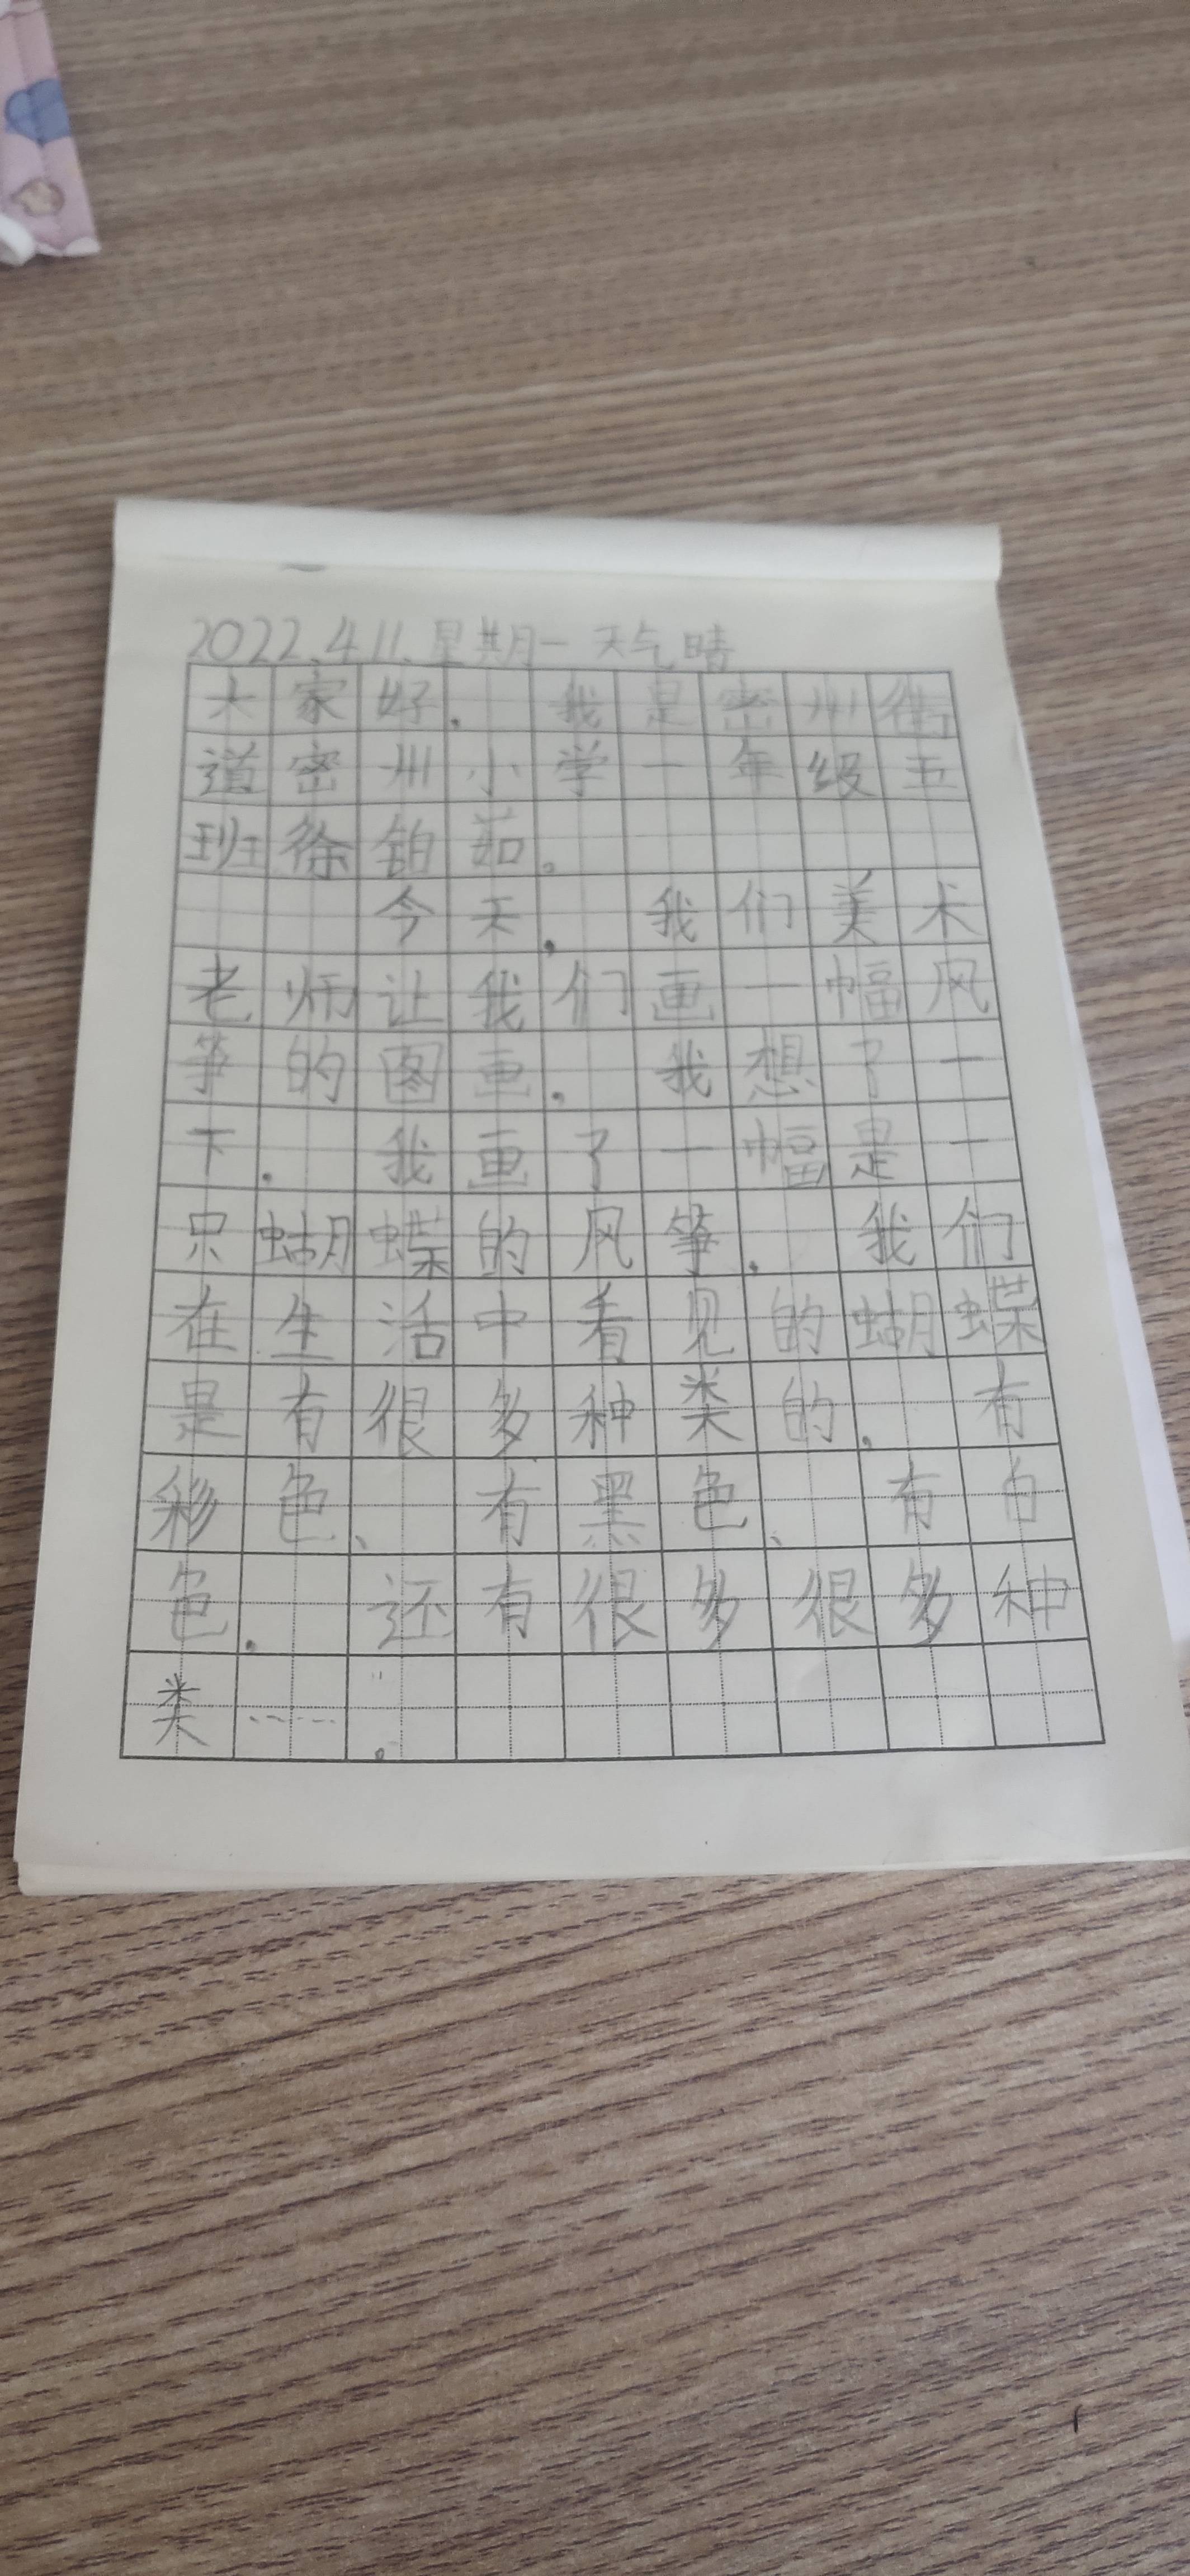 2022.4.11.星期一 天气晴
大家好.我是密州街
道密州小学一年级五
班徐铂茹。
今天,我们美术
老师让我们画一幅风
筝的图画.我想了一
下.我画了一幅是一
只蝴蝶的风筝.我们
在生活中看见的蝴蝶
是有很多种类的.有
彩色、有黑色、有白
色.还有很多很多种
类……。